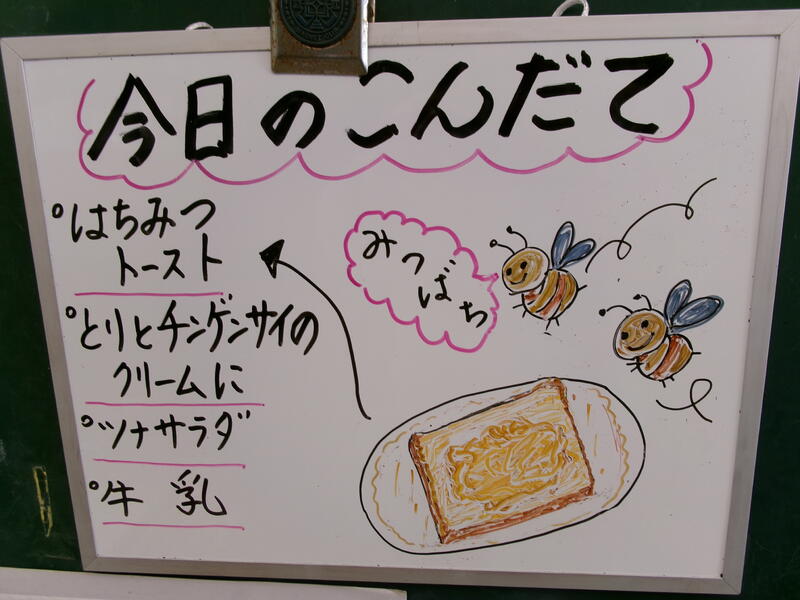 今日のこんだて
°はちみつ
トースト
°とりとチンゲンサイの
クリームに
°ツナサラダ
°牛乳
みつばち